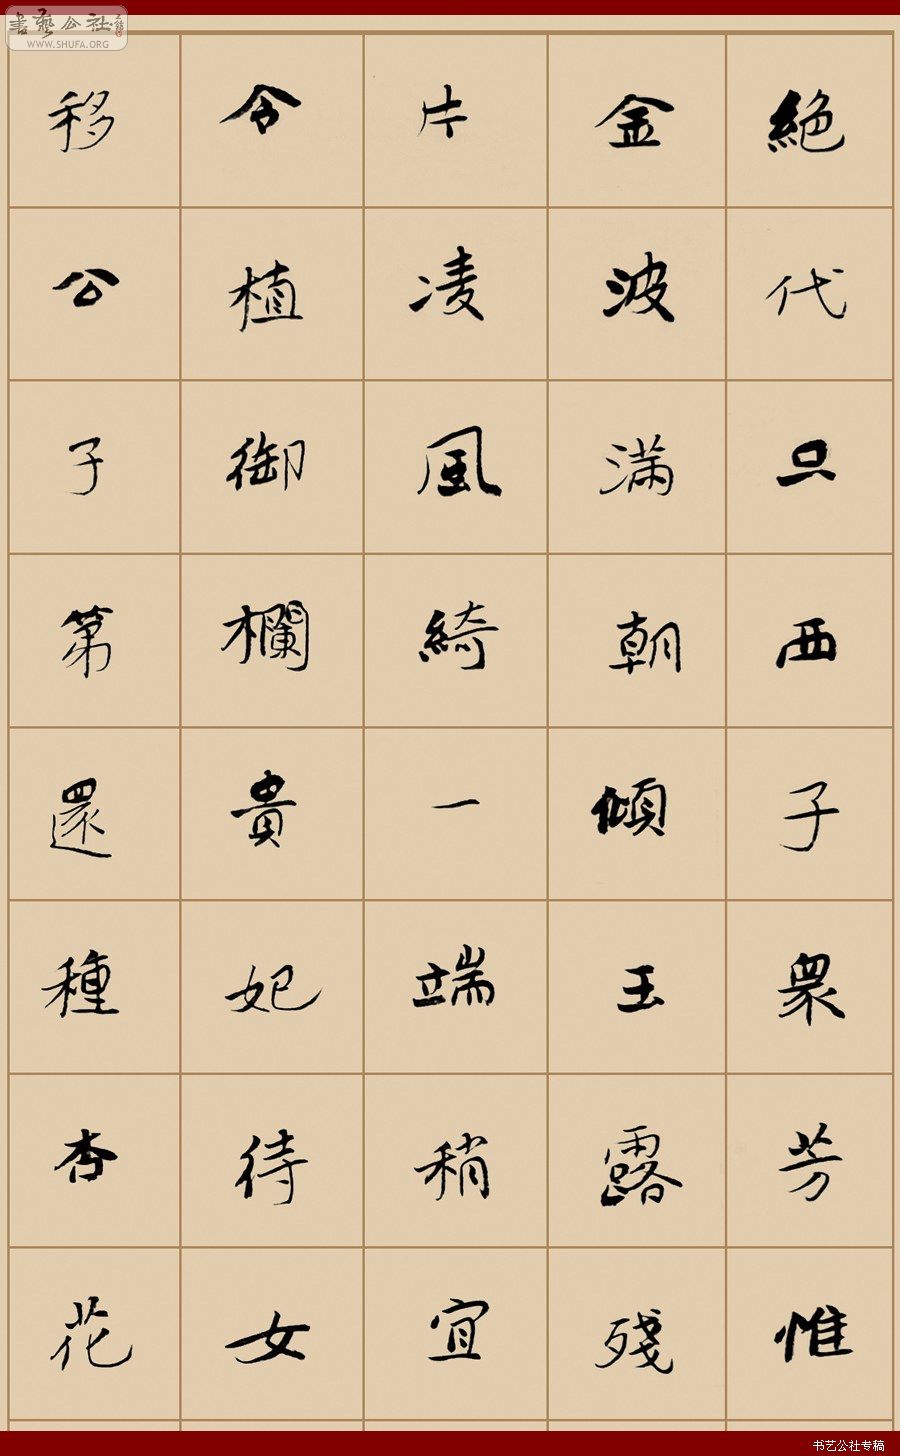 書藝公社
WWW.SHUFA.ORG
絕代只西子眾芳惟
金波滿朝傾玉露殘
片凌風綺一端稍宜
令植御欄貴妃待女
移公子第還種杏花
书艺公社专稿